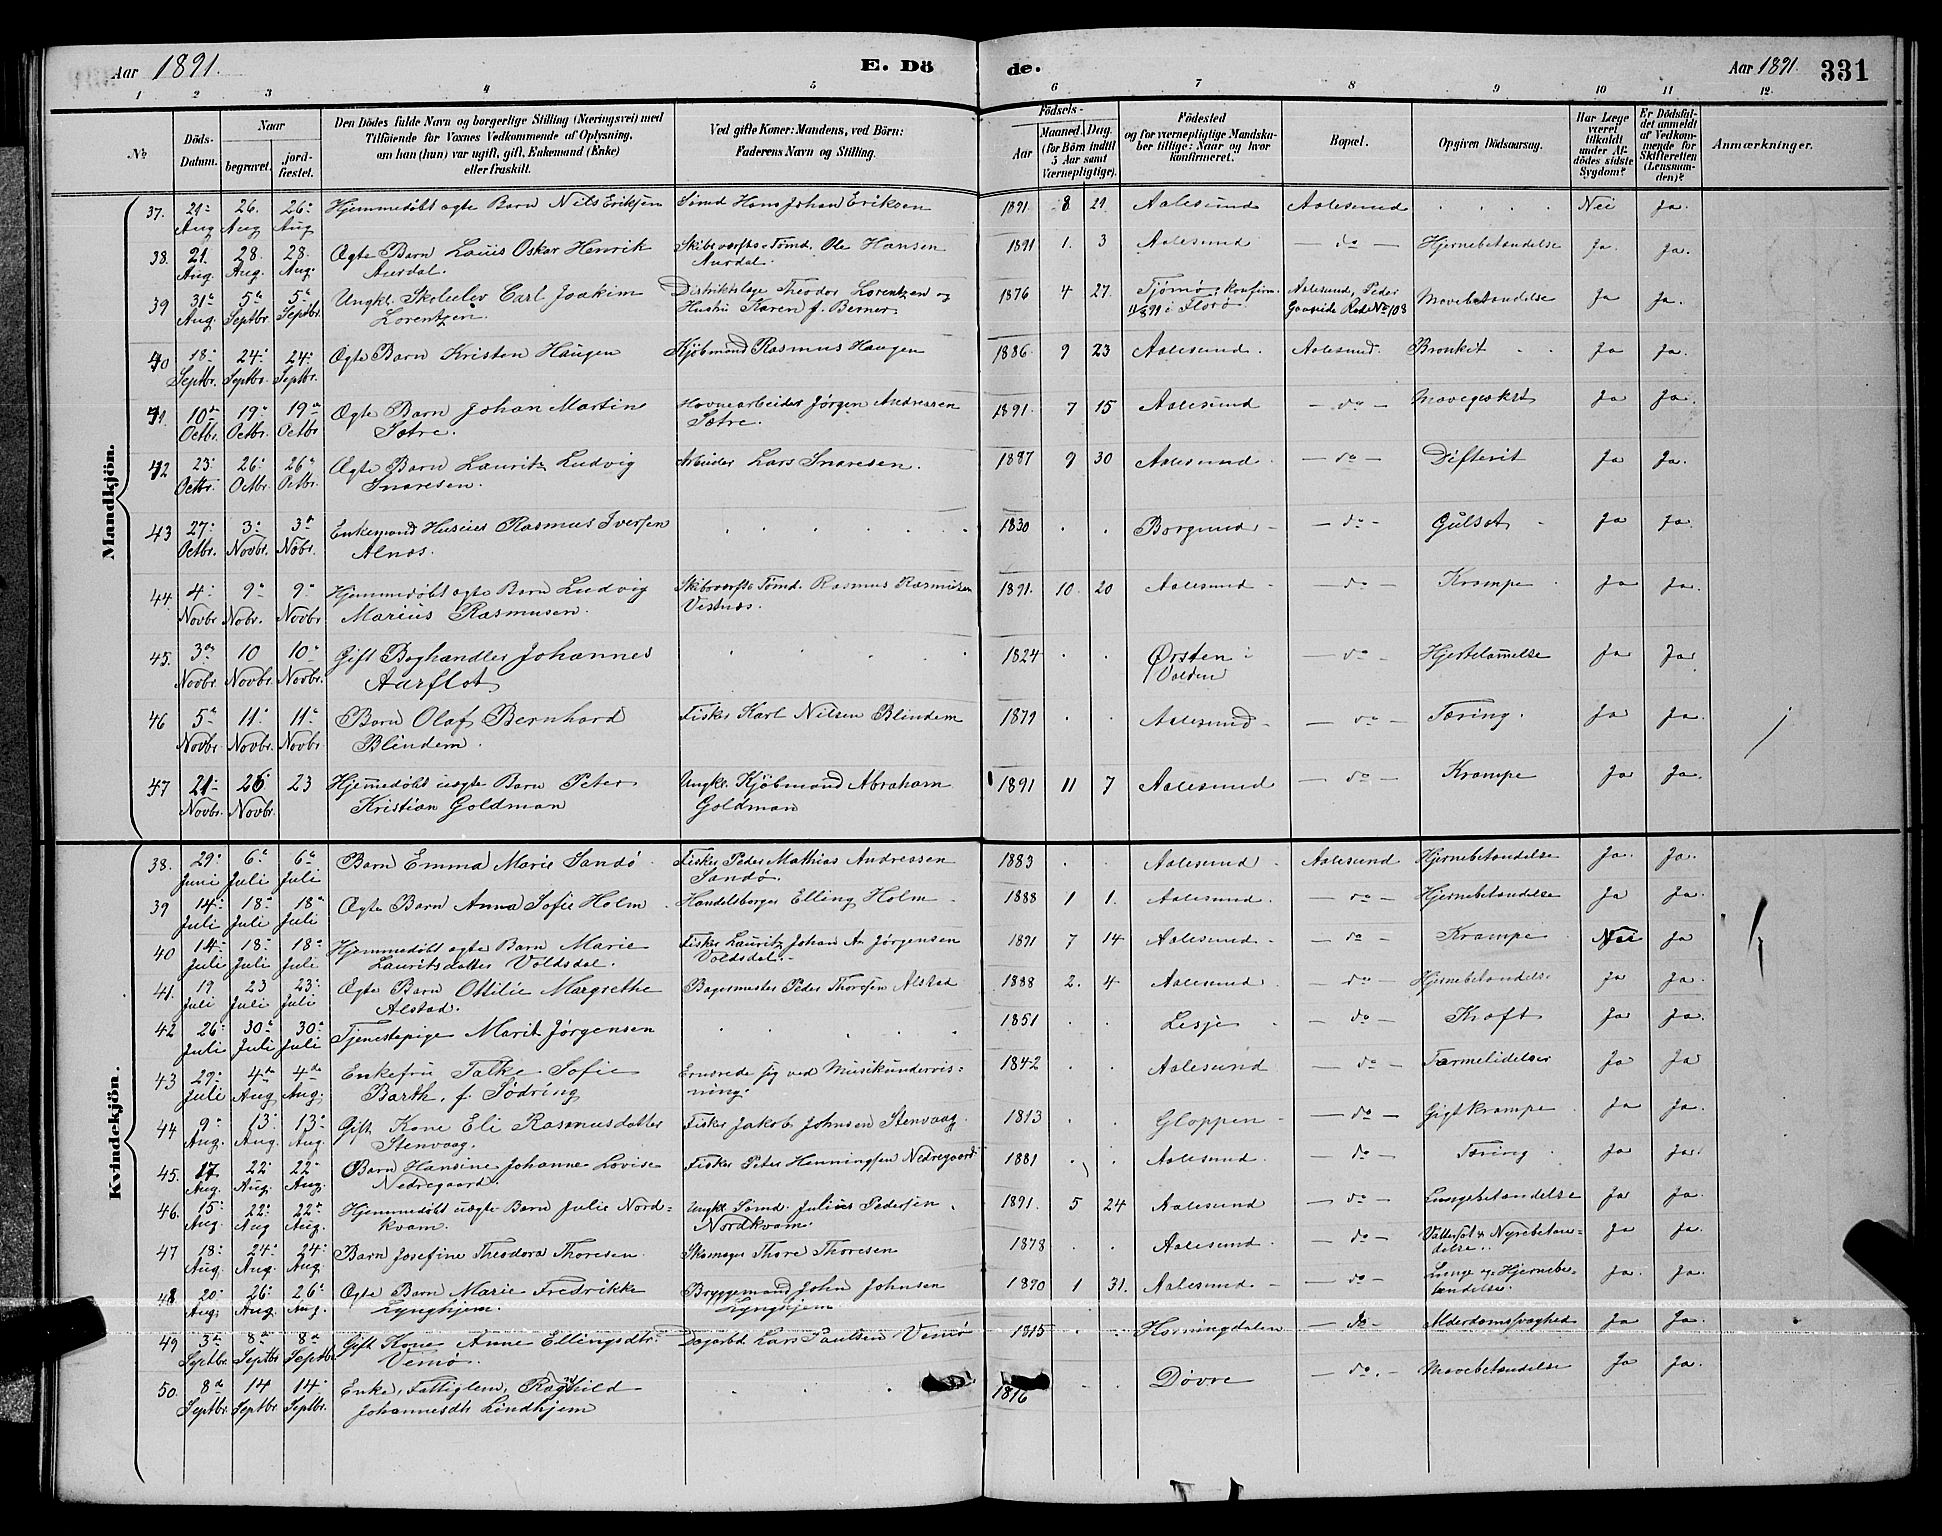 Aar 1891. E. Dö de. Aar 1891. 331
1 2 3 4 5 6 7 8 9 10 11 12
No. Döds-Datum. Naar begravet. jordfæstet. Den Dödes fulde Navn og borgerlige Stilling (Næringsvei) med Tilföiende for Voxnes Vedkommende af Oplysning, om han (hun) var ugift, gift, Enkemand (Enke) eller fraskilt. Ved gifte Koner: Mandens, ved Börn: Faderens Navn og Stilling. Födsels- Aar Maaned Dag (for Börn indtil 5 Aar samt Værnepligtige). Födested og for værnepligtige Mandskaber tillige: Naar og hvor konfirmeret. Bopæl. Opgiven Dödsaarsag. Har Læge været tilkaldt under Afdödes sidste Sygdom? Er Dödsfaldet anmeldt af Vedkommende for Skifteretten (Lensmanden)? Anmærkninger.
Mandkjön.
37. 21 Aug 26. Aug 26 Aug Hjemmedöbt ægte Barn Nils Eriksen Sömd Hans Johan Eriksen 1891 8 21 Aalesund Aalesund Nei Ja.
38. 21. Aug. 28. Aug. 28. Aug. Ægte Barn Louis Oskar Henrik Aurdal. Skibsværfts-Tömd. Ole Hansen Aurdal. 1891 1. 3 Aalesund do Hjernebetændelse Ja. Ja.
39 31 Aug. 5 Septbr. 5 Septbr. Ungkl. Skoleelev Carl Joakim Lorentzen. Distriktslæge Theodor Lorentzen og Hustru Karen f. Berner. 1876 4 27. Tjömö, Konfirm. i Florö Aalesund, Peder Gaaseide Rode No 108 Mavebetændelse Ja Ja.
40 18 Septbr. 24 Septbr. 24 Septbr. Ægte Barn Kristen Haugen Kjöbmand Rasmus Haugen 1886 9 23 Aalesund. Aalesund. Bronkit Ja Ja.
41. 10 Octbr. 19 Octbr. 19 Octbr Ægte Barn Johan Martin Sætre. Havnearbeider Jörgen Andressen Sætre. 1891 7 15 Aalesund do Mavegeskst Ja Ja.
42 23 Octbr. 26 Octbr. 26 Octbr. Ægte Barn Lauritz Ludvig Snaresen. Arbeider Lars Snaresen. 1887 9 30 Aalesund. do Difterit Ja Ja.
43 27 Octbr. 3 Novbr. 3 Nobr. Enkemand Huseier Rasmus Iversen Alnæs. 1830 Borgund do Gulsot Ja Ja.
44. 4 Novbr 9 Nobr. 9 Novbr Hjemmedöbt ægte Barn Ludvig Marius Rasmusen. Skibsværfts Tömd. Rasmus Rasmusen Vestnæs. 1891. 10. 20 Aalesund do Krampe Ja Ja.
45. 3 Novbr. 10 Novbr. 10 Novbr. Gift Boghandler Johannes Aarflot 1824 Örsten i Volden do Hjertelammelse Ja Ja
46 5 Novbr. 11 Novbr. 11 Novbr. Barn Olaf Bernhard Blindem. Fisker Karl Nilsen Blindem 1879 Aalesund do Tæring. Ja Ja.
47 21 Novbr. 26 Novbr. 23 Hjemmedöbt uægte Barn Peter Kristian Goldman Ungkl. Kjöbmand Abraham Goldman 1891 11 7 Aalesund do Krampe Ja Ja.
Kvindekjön.
38. 29 Juni 6 Juli 6 Juli Barn Emma Marie Sandö. Fisker Peder Mathias Andressen Sandö. 1883 Aalesund. Aalesund Hjernebetændelse Ja. Ja.
39 14 Juli 18 Juli 18 Juli Ægte Barn Anna Sofie Holm. Handelsborger Elling Holm. 1888 1 1. Aalesund. do Hjernebetændelse Ja Ja.
40 14 Juli 18 Juli 18 Juli Hjemmedöbt ægte Barn Marie Lauritsdatter Voldsdal. Fisker Lauritz Johan A. Jörgensen Voldsdal. 1891 7 14 Aalesund. do Krampe Nei Ja
41. 19 Juli 23 Juli 23 Juli Ægte Barn Ottilie Margrethe Alstad. Bagermester Peder Thoresen Alstad 1888 2. 4 Aalesund. do Hjernebetændelse Ja Ja.
42 26 Juli 30 Juli 30 Juli Tjenestepige Marit Jörgensen 1851 Lesje do Kræft Ja Ja.
43 29 Juli 4 Aug 4 Aug. Enkefru Talke Sofie Barth, f. Södring Ernærede sig ved Musikundervisning. 1842 Aalesund do Tarmelidelser Ja Ja
44 9 Aug. 13 Aug. 13 Aug. Gift Kone Eli Rasmusdatter Stenvaag. Fisker Jakob Johnsen Stenvaag. 1813 Gloppen do Gigtkrampe Ja Ja
45. 17 Aug. 22 Aug. 22 Aug. Barn Hansine Johanne Lovise Nedregaard. Fisker Peter Henningsen Nedregaard 1881 Aalesund do Tæring. Ja Ja
46. 15 Aug. 22 Aug 22 Aug. Hjemmedöbt uægte Barn Julie Nordkvam. Ungkl. Sömd. Julius Pedersen Nordkvam. 1891. 5 24 Aalesund do Lungebetændelse Ja Ja.
47 18 Aug. 24 Aug. 24 Aug. Barn Josefine Theodora Thoresen. Skomager Thore Thoresen 1878 Aalesund. do Vattersot & Nyrebetændelse. Ja Ja.
48 20 Aug. 26 Aug. 26 Aug. Ægte Barn Marie Fredrikke Lynghjem. Bryggemand John Johnsen Lynghjem 1890 1 31. Aalesund. do Lunge og Hjernebetændelse. Ja. Ja.
49 3 Septbr. 8 Septbr 8 Septbr Gift Kone Anne Ellingsdtr. Vemö. Dagarbd. Lars Paulsen Vemö 1815 Horningdalen do Alderdomssvaghed Ja Ja.
50. 8 Septbr. 14 Septbr. 14 Septbr. Enke, Fattiglem, Ragnhild Johannesdtr. Lindhjem 1816 Dovre do. Mavebetændelse Ja Ja.